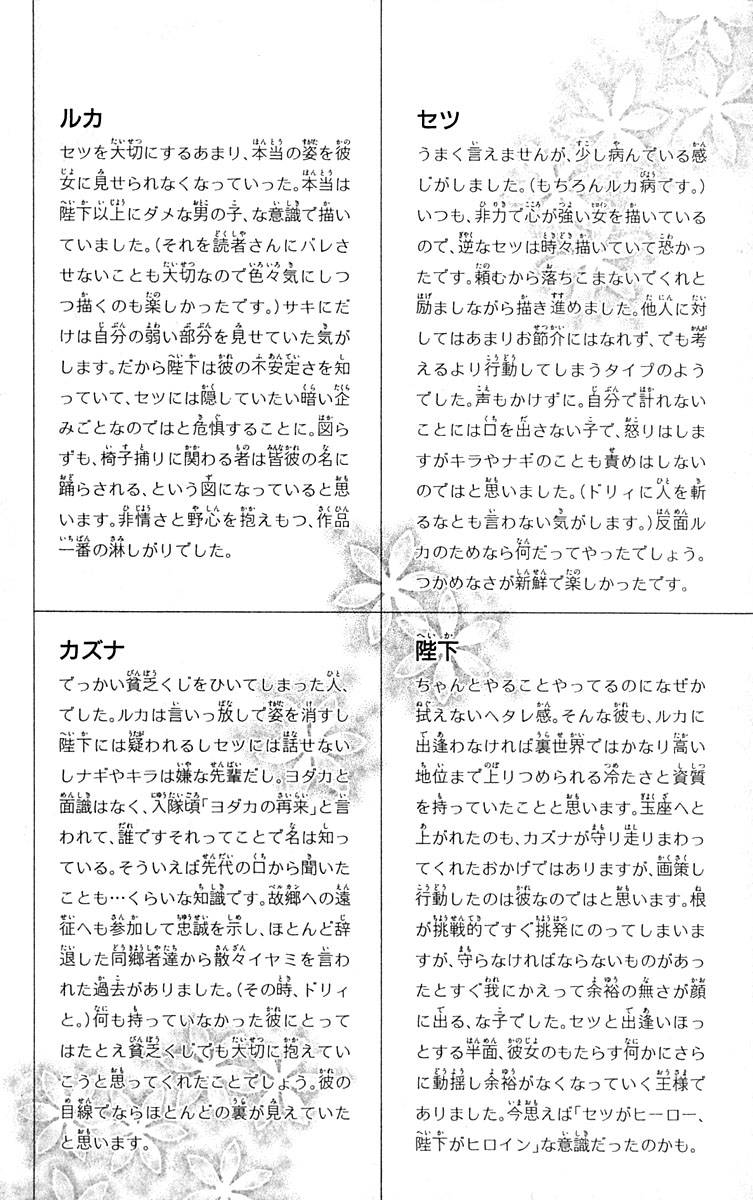 ルカ
セツを大切にするあまり、本当の姿を彼
女に見せられなくなっていった。本当は
陛下以上にダメな男の子、な意識で描い
ていました。(それを読者さんにバレさ
せないことも大切なので色々気にしつ
つ描くのも楽しかったです。)サキにだ
けは自分の弱い部分を見せていた気が
します。だから陛下は彼の不安定さを知
っていて、セツには隠していたい暗い企
みごとなのではと危惧することに。図ら
ずも、椅子捕りに関わる者は皆彼の名に
踊らされる、という図になっていると思
います。非情さと野心を抱えもつ、作品
一番の淋しがりでした。
セツ
うまく言えませんが、少し病んでいる感
じがしました。(もちろんルカ病です。)
いつも、非力で心が強い女を描いている
ので、逆なセツは時々描いていて恐かっ
たです。頼むから落ちこまないでくれと
励ましながら描き進めました。他人に対
してはあまりお節介にはなれず、でも考
えるより行動してしまうタイプのよう
でした。声もかけずに。自分で計れない
ことには口を出さない子で、怒りはしま
すがキラやナギのことも責めはしない
のではと思いました。(ドリィに人を斬
るなとも言わない気がします。)反面ル
カのためなら何だってやったでしょう。
つかめなさが新鮮で楽しかったです。
カズナ
でっかい貧乏くじをひいてしまった人、
でした。ルカは言いっ放しで姿を消すし
陛下には疑われるしセツには話せない
しナギやキラは嫌な先輩だし。ヨダカと
面識はなく、入隊頃「ヨダカの再来」と言
われて、誰ですそれってことで名は知っ
ている。そういえば先代の口から聞いた
ことも…くらいな知識です。故郷への遠
征へも参加して忠誠を示し、ほとんど辞
退した同郷者達から散々イヤミを言わ
れた過去がありました。(その時、ドリィ
と。)何も持っていなかった彼にとって
はたとえ貧乏くじでも大切に抱えてい
こうと思ってくれたことでしょう。彼の
目線でならほとんどの裏が見えていた
と思います。
陛下
ちゃんとやることやってるのになぜか
拭えないヘタレ感。そんな彼も、ルカに
出逢わなければ裏世界ではかなり高い
地位まで上りつめられる冷たさと資質
を持っていたことと思います。玉座へと
上がれたのも、カズナが守り走りまわっ
てくれたおかげではありますが、画策し
行動したのは彼なのではと思います。根
が挑戦的ですぐ挑発にのってしまいま
すが、守らなければならないものがあっ
たとすぐ我にかえって余裕の無さが顔
に出る、な子でした。セツと出逢いほっ
とする半面、彼女のもたらす何かにさら
に動揺し余裕がなくなっていく王様で
ありました。今思えば「セツがヒーロー、
陛下がヒロイン」な意識だったのかも。